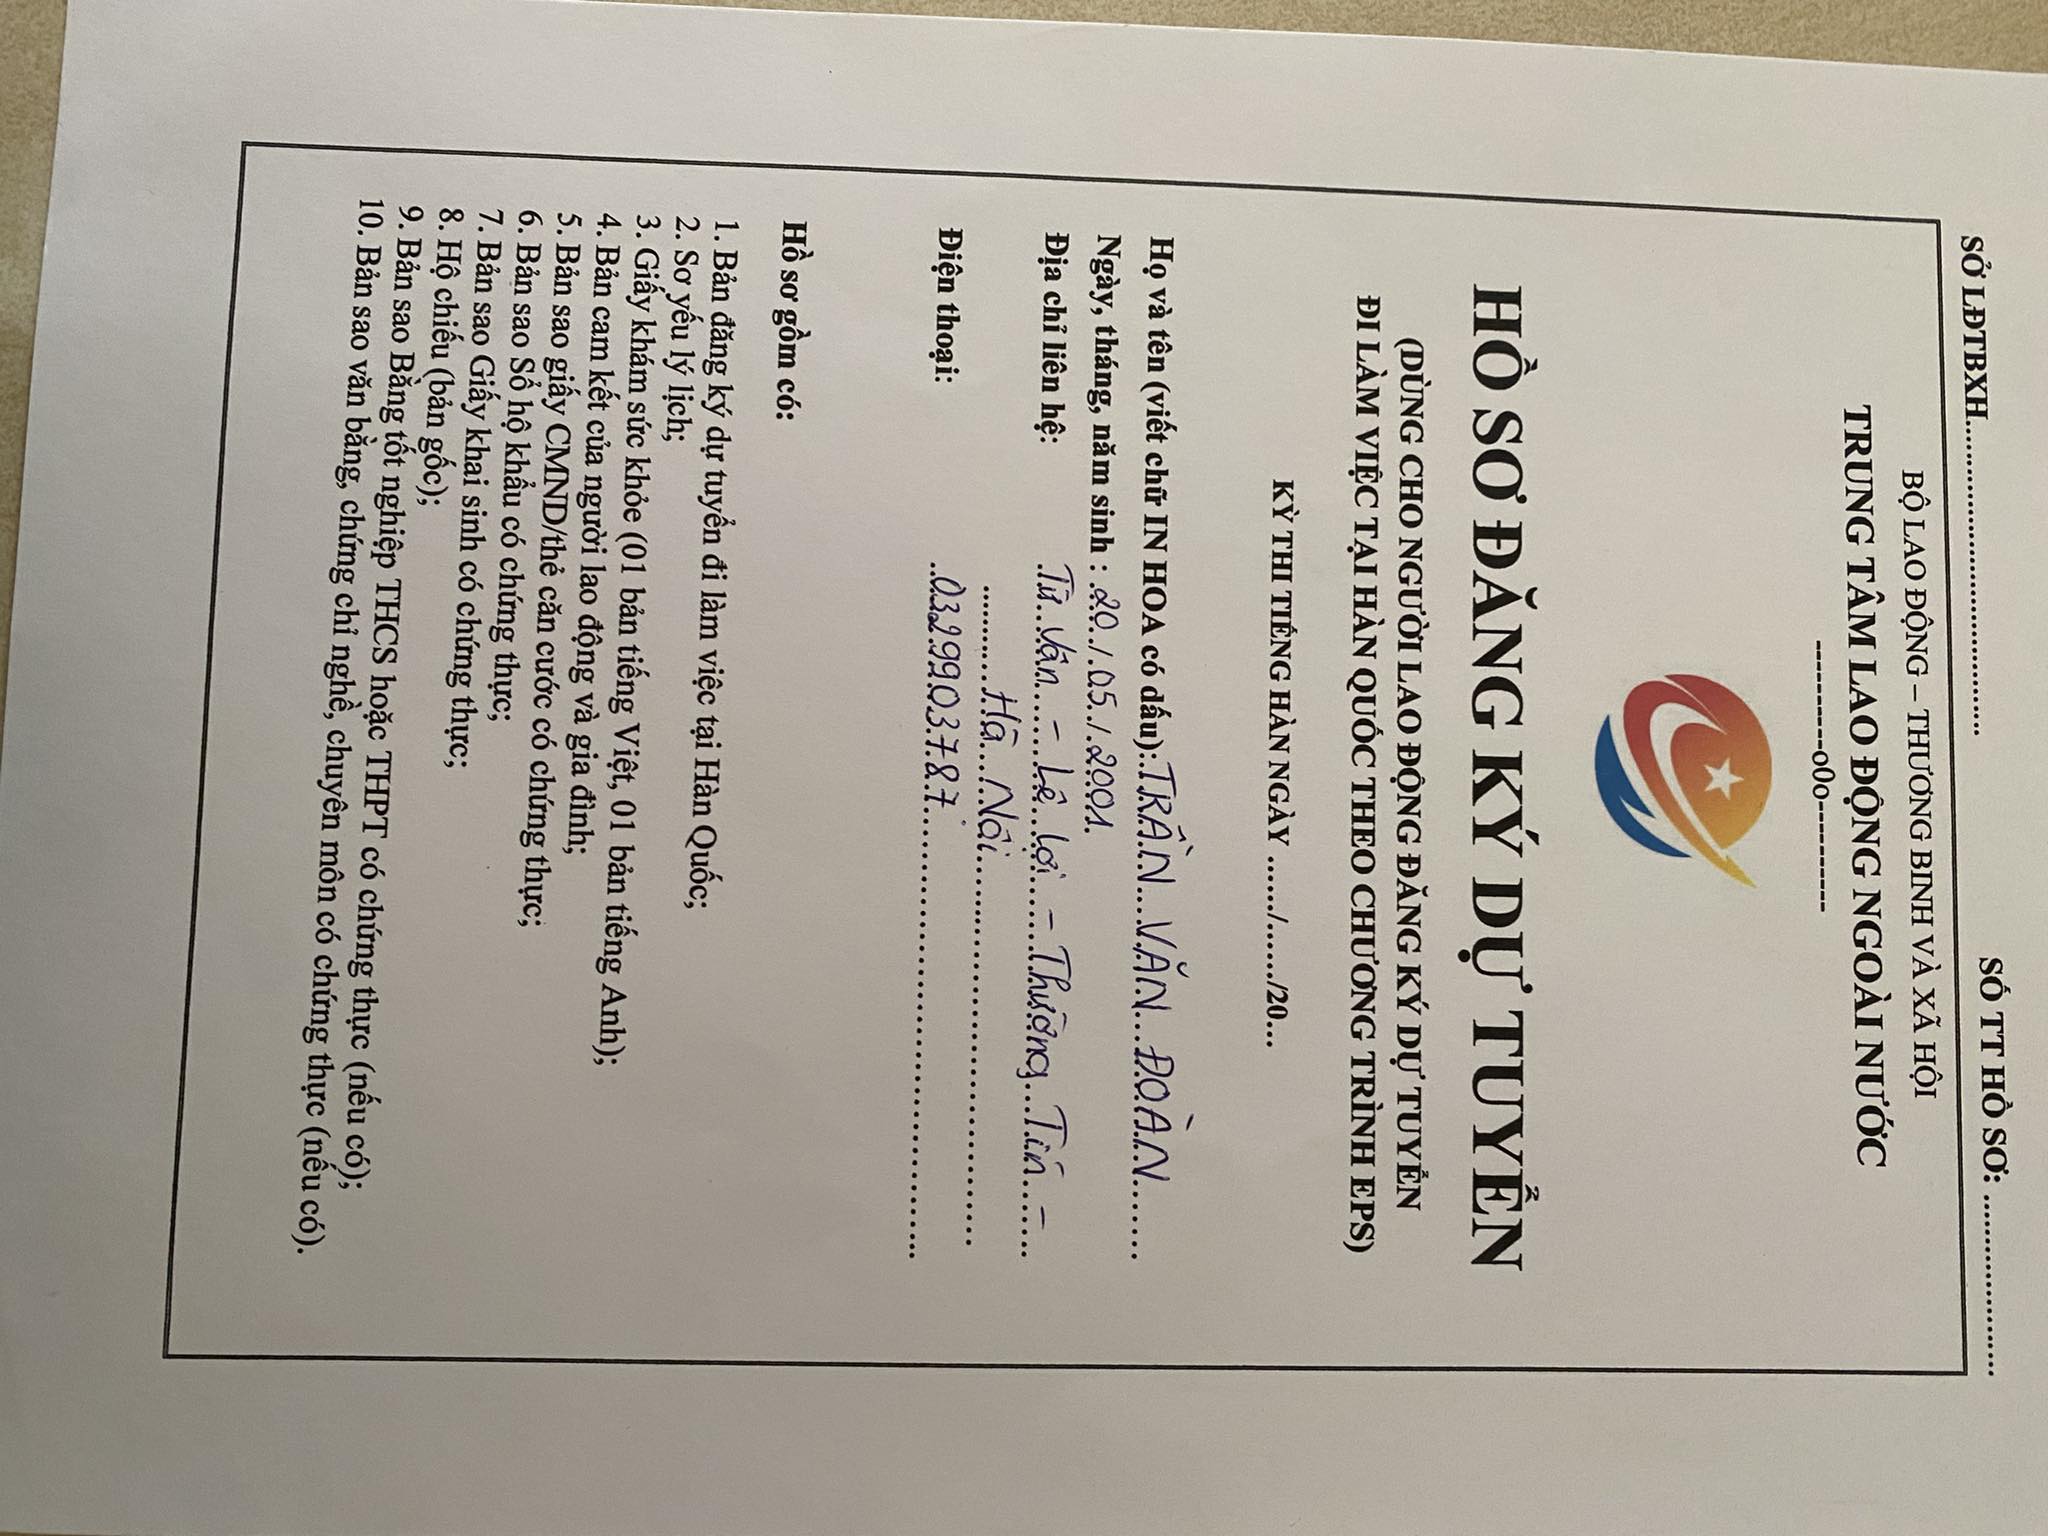 SỞ LĐTBXH........................................ SỐ TT HỒ SƠ: ........................
BỘ LAO ĐỘNG – THƯƠNG BINH VÀ XÃ HỘI
TRUNG TÂM LAO ĐỘNG NGOÀI NƯỚC
---------o0o---------
HỒ SƠ ĐĂNG KÝ DỰ TUYỂN
(DÙNG CHO NGƯỜI LAO ĐỘNG ĐĂNG KÝ DỰ TUYỂN
ĐI LÀM VIỆC TẠI HÀN QUỐC THEO CHƯƠNG TRÌNH EPS)
KỲ THI TIẾNG HÀN NGÀY ....../....../20...
Họ và tên (viết chữ IN HOA có dấu): TRẦN VĂN ĐOÀN
Ngày, tháng, năm sinh : 20/05/2001
Địa chỉ liên hệ: Từ Vân - Lê Lợi - Thường Tín -
Hà Nội
Điện thoại: 0329903787
Hồ sơ gồm có:
1. Bản đăng ký dự tuyển đi làm việc tại Hàn Quốc;
2. Sơ yếu lý lịch;
3. Giấy khám sức khỏe (01 bản tiếng Việt, 01 bản tiếng Anh);
4. Bản cam kết của người lao động và gia đình;
5. Bản sao giấy CMND/thẻ căn cước có chứng thực;
6. Bản sao Sổ hộ khẩu có chứng thực;
7. Bản sao Giấy khai sinh có chứng thực;
8. Hộ chiếu (bản gốc);
9. Bản sao Bằng tốt nghiệp THCS hoặc THPT có chứng thực (nếu có);
10. Bản sao văn bằng, chứng chỉ nghề, chuyên môn có chứng thực (nếu có).